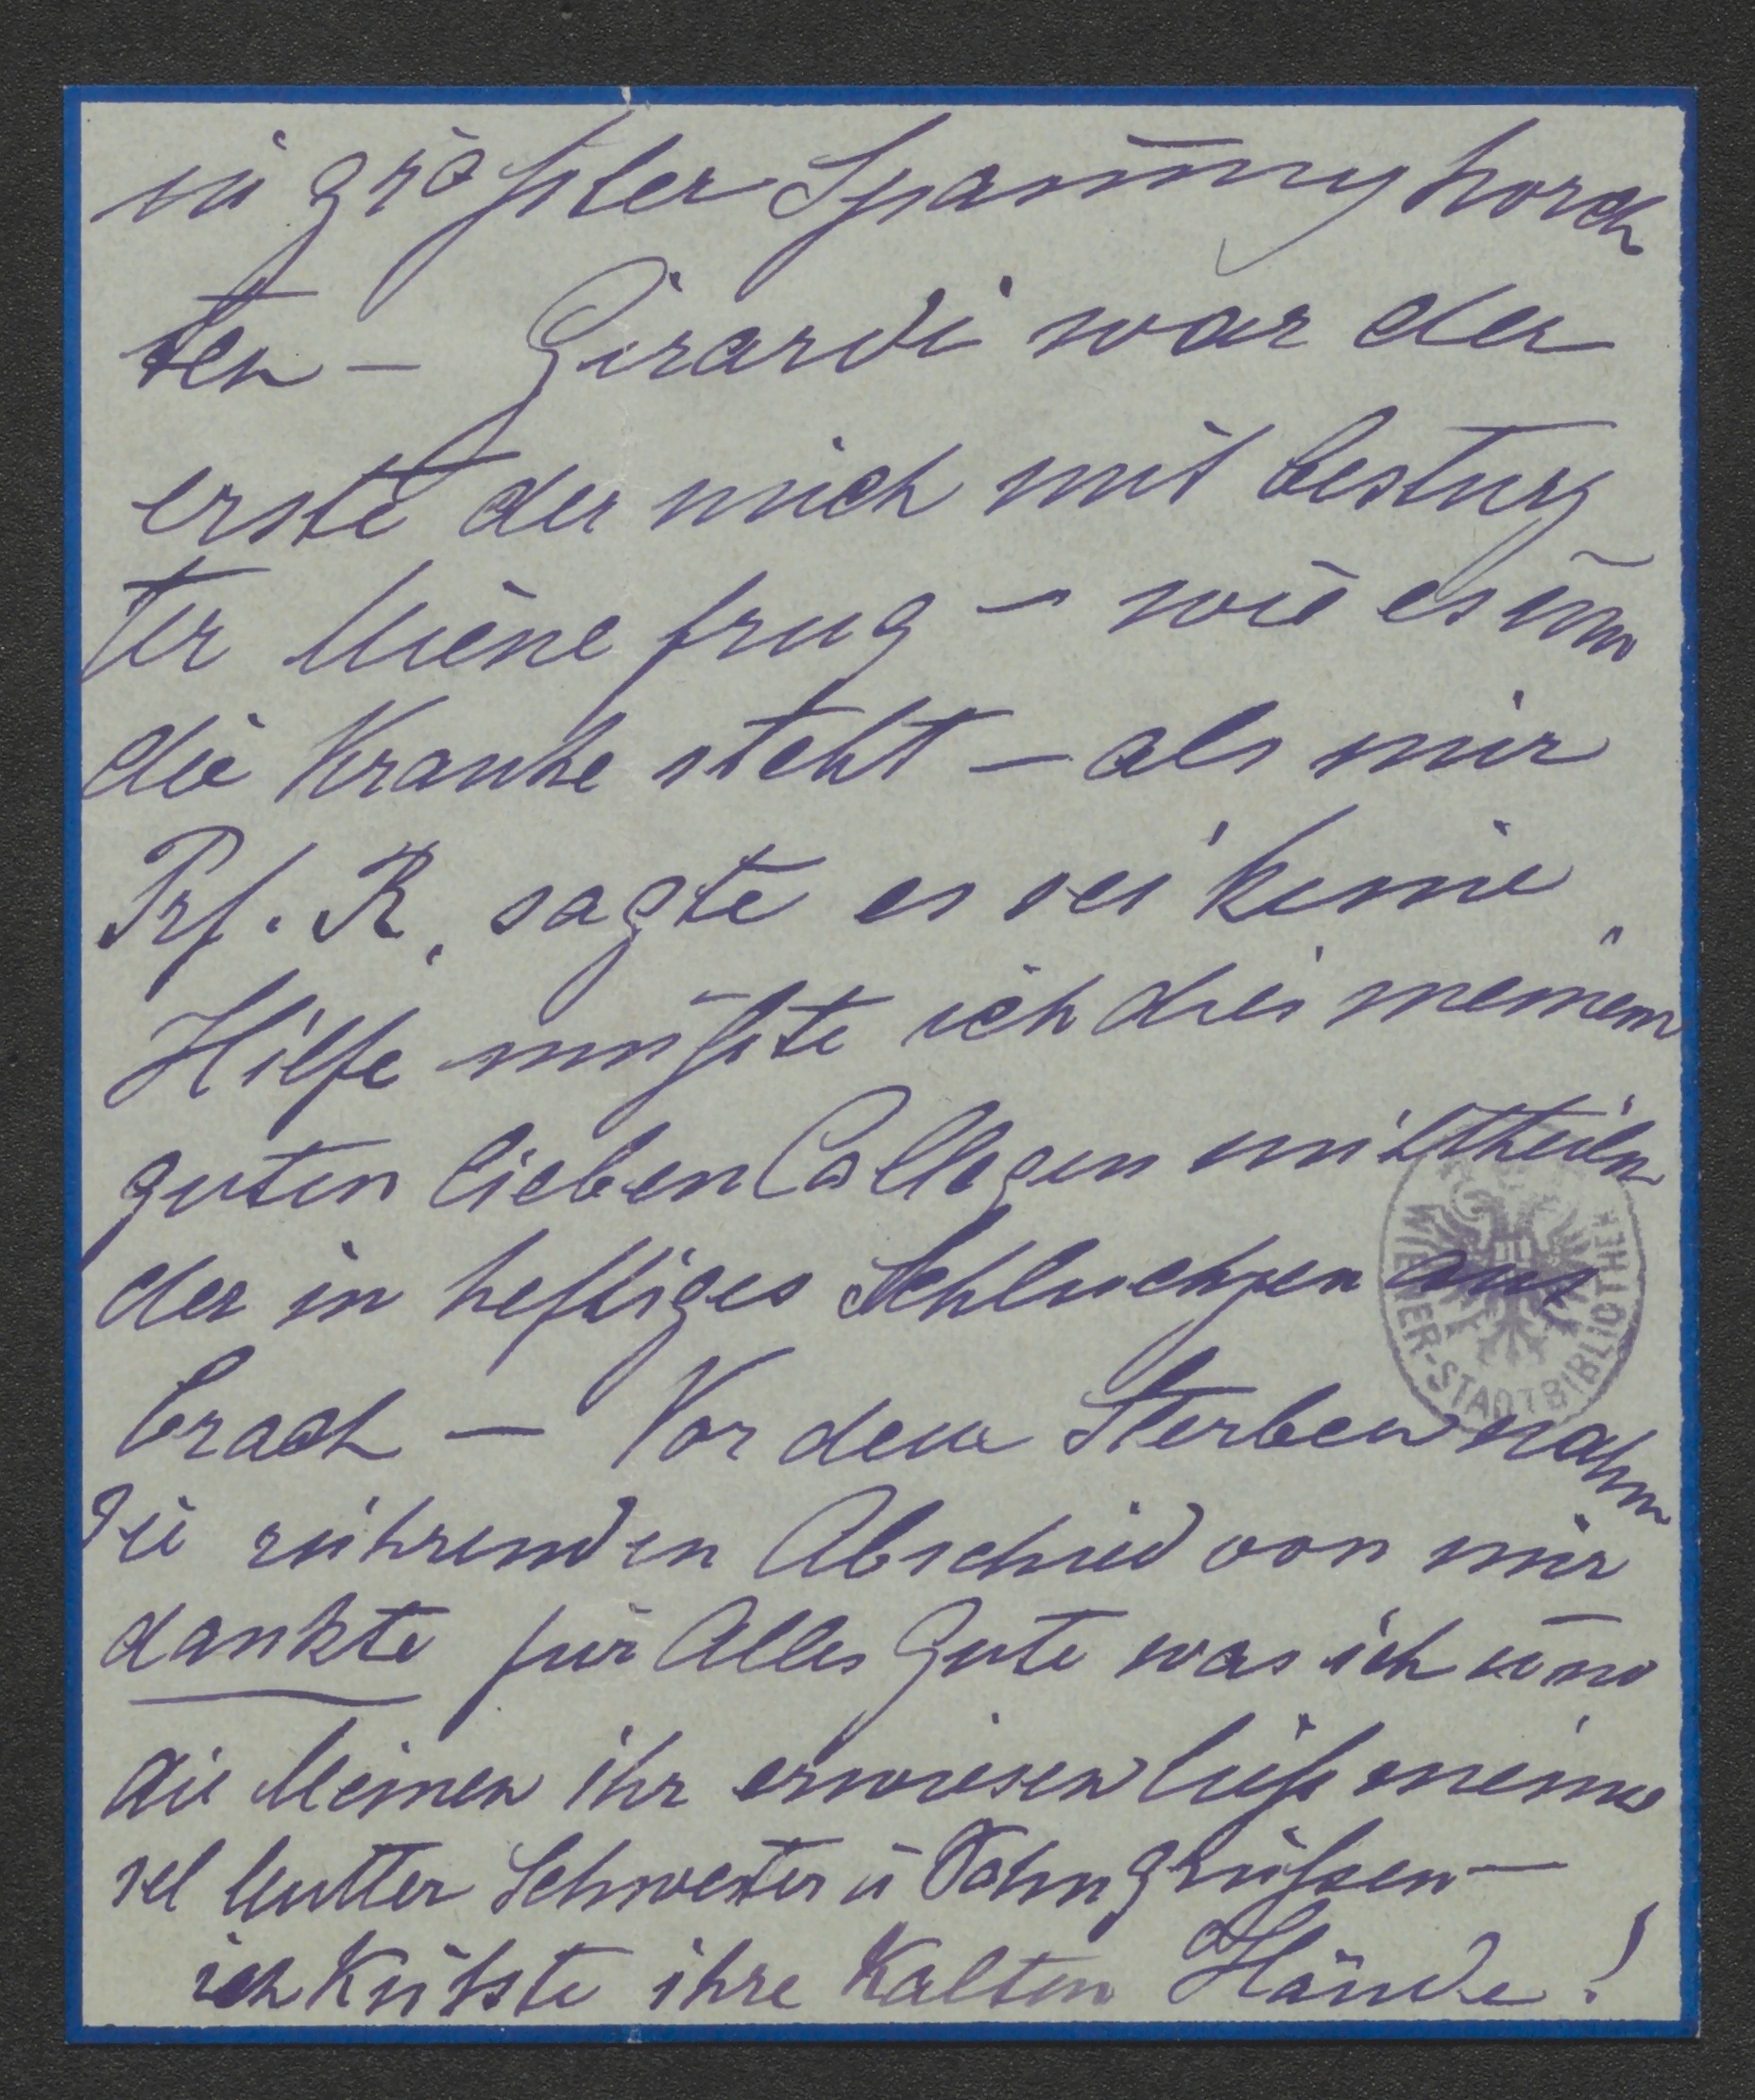 in größter Spannung horch
ten – Girardi war der
erste der mich mit bestürz
ter Miene frug – wie es um
die Kranke steht – als mir
Prf. R. sagte es sei keine
Hilfe mußte ich dies meinem
guten lieben Collegen mittheilen
der in heftiges Schluchzen aus
brach – Vor dem Sterben nahm
Sie rührenden Abschied von mir
dankte für Alles Gute was ich und
die Meinen ihr erwiesen ließ meine
sel Mutter Schwester u Sohn grüßen –
ich küßte ihre kalten Hände!
WIENER-STADTBIBLIOTHEK